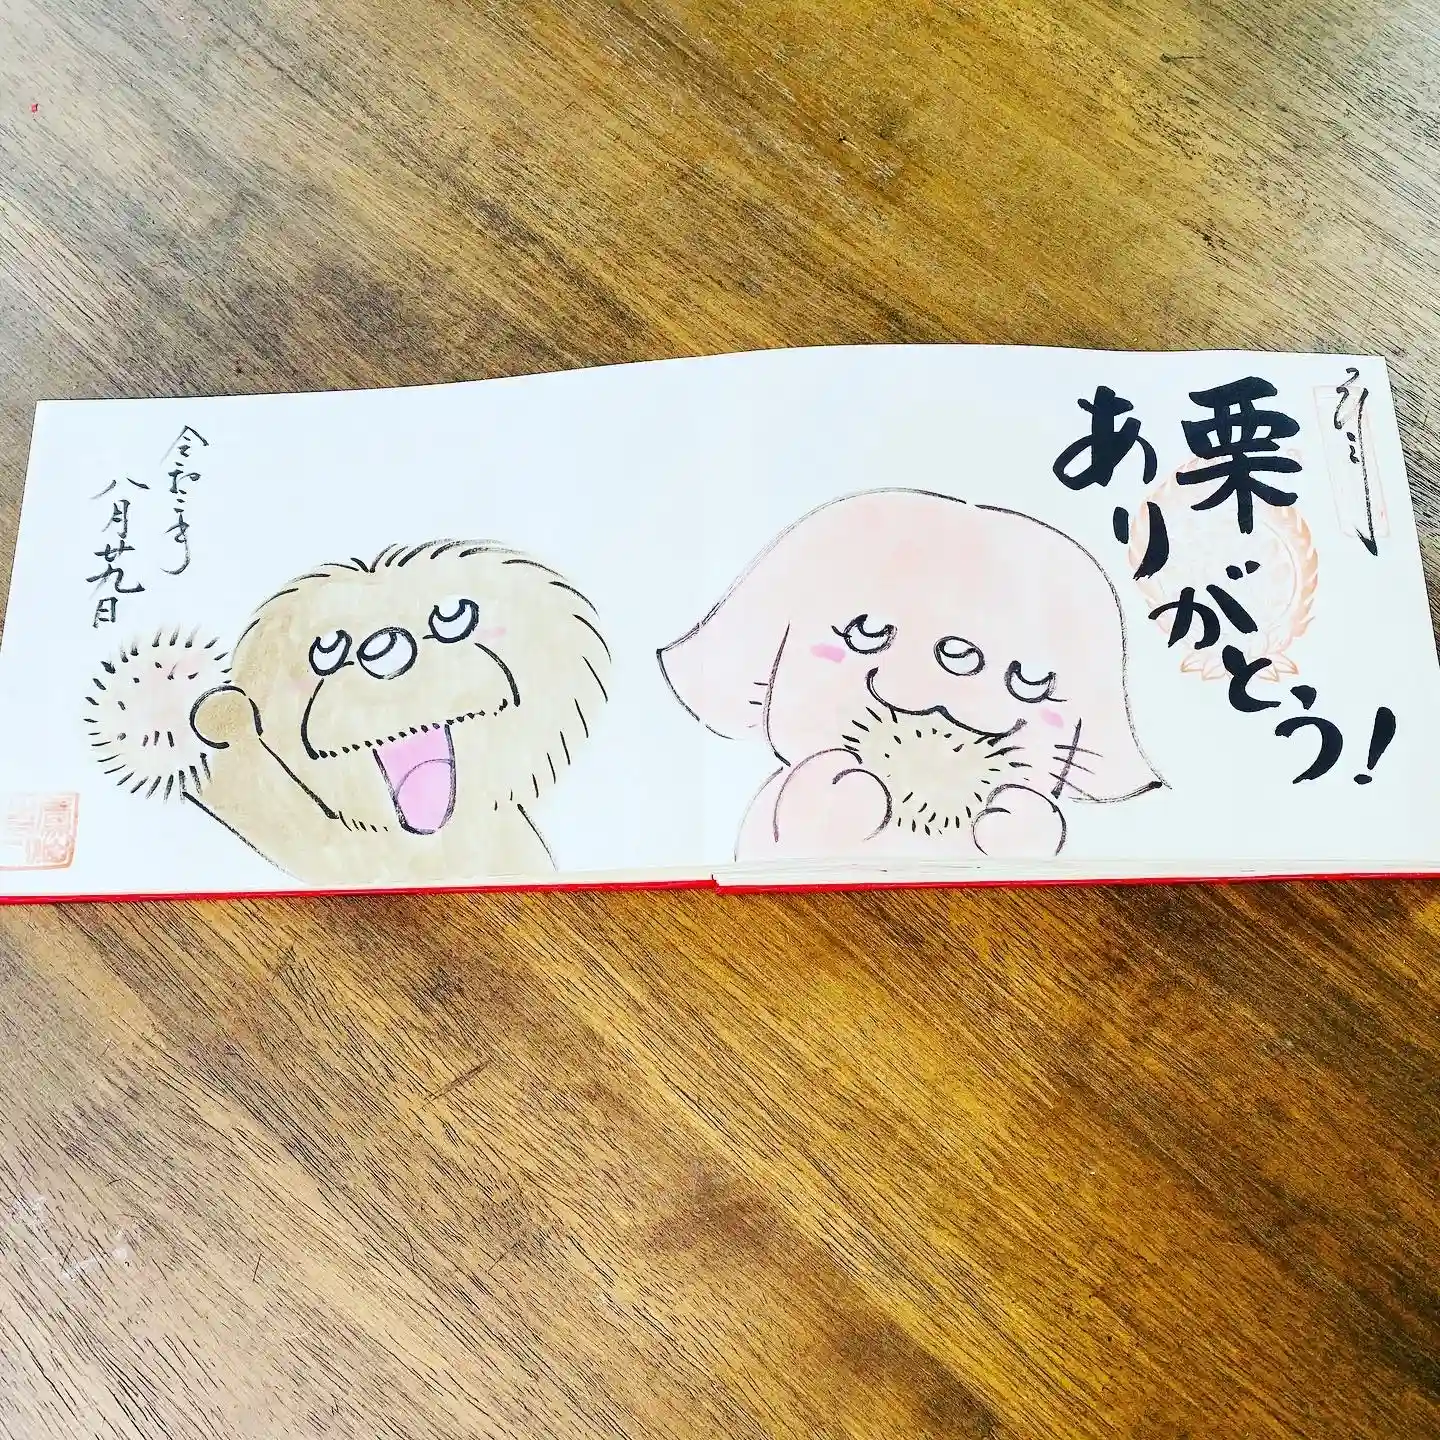 栗
ありがとう!
令和二年
八月廿九日